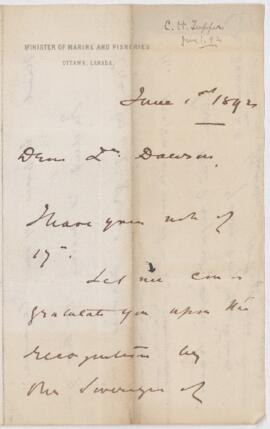 C. H. Tupper
June 1. 92
MINISTER OF MARINE AND FISHERIES
OTTAWA, CANADA.
June 1st 1892
Dear Dr. Dawson,
I have your note of
17th.
Let me con
gratulate you upon the
recognition by
the Sovereign of